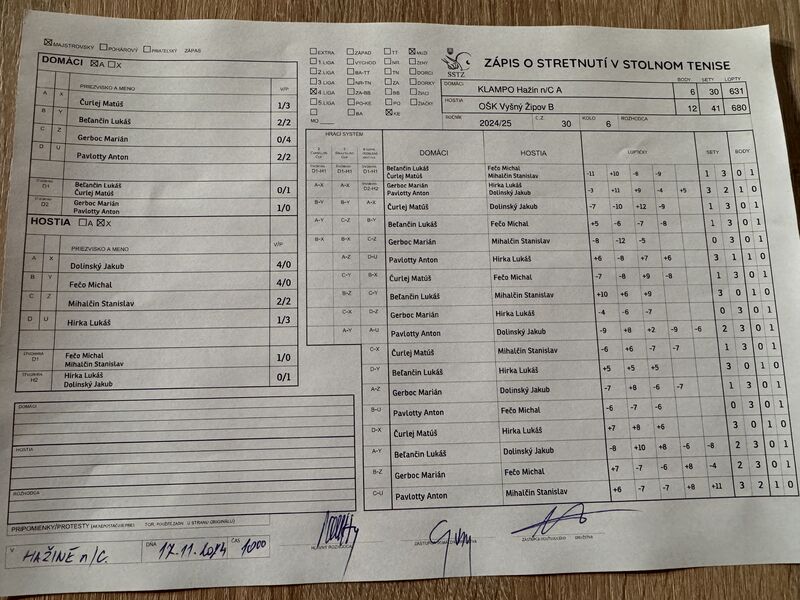 MAJSTROVSKÝ POHÁROVÝ PRIATEĽSKÝ ZÁPAS
DOMÁCI A X
PRIEZVISKO A MENO V/P
A X Čurlej Matúš 1/3
B Y Beľančin Lukáš 2/2
C Z Gerboc Marián 0/4
D U Pavlotty Anton 2/2
D1 Beľančin Lukáš 0/1
Čurlej Matúš
D2 Gerboc Marián 1/0
Pavlotty Anton
HOSTIA A X
PRIEZVISKO A MENO V/P
A X Dolinský Jakub 4/0
B Y Fečo Michal 4/0
C Z Mihalčin Stanislav 2/2
D U Hirka Lukáš 1/3
ŠTVORHRA D1 Fečo Michal 1/0
Mihalčin Stanislav
ŠTVORHRA H2 Hirka Lukáš 0/1
Dolinský Jakub
DOMÁCI
HOSTIA
ROZHODCA
PRIPOMIENKY/PROTESTY
V HAŽÍNE n/C. DŇA 17.11.2024 ČAS 1000
EXTRA ZÁPAD TT MUŽI
1 LIGA VÝCHOD NR ŽENY
2 LIGA BA-TT TN DORCI
3 LIGA NR-TN ZA DORKY
4 LIGA ZA-BB BB ŽIACI
5 LIGA PO-KE PO ŽIAČKY
BA KE
MO
SSTZ
ZÁPIS O STRETNUTÍ V STOLNOM TENISE
BODY SETY LOPTY
DOMÁCI KLAMPO Hažín n/C A 6 30 631
HOSTIA OŠK Vyšný Žipov B 12 41 680
ROČNÍK 2024/25 Č.Z. 30 KOLO 6 ROZHODCA
HRACÍ SYSTÉM DOMÁCI HOSTIA LOPTIČKY SETY BODY
D1-H1 D1-H1 D1-H1 Beľančin Lukáš Fečo Michal -11 +10 -6 -9 1 3 0 1
Čurlej Matúš Mihalčin Stanislav
A-X A-X D2-H2 Gerboc Marián Hirka Lukáš -3 +11 +9 -4 +5 3 2 1 0
Pavlotty Anton Dolinský Jakub
B-Y B-Y A-X Čurlej Matúš Dolinský Jakub -7 -10 +12 -9 1 3 0 1
A-Y C-Z B-Y Beľančin Lukáš Fečo Michal +5 -6 -7 -8 1 3 0 1
B-X B-X C-Z Gerboc Marián Mihalčin Stanislav -8 -12 -5 0 3 0 1
A-Z D-U Pavlotty Anton Hirka Lukáš +6 -8 +7 +6 3 1 1 0
C-Y B-X Čurlej Matúš Fečo Michal -7 -8 +9 -8 1 3 0 1
B-Z C-Y Beľančin Lukáš Mihalčin Stanislav +10 +6 +9 3 0 1 0
C-X D-Z Gerboc Marián Hirka Lukáš -4 -6 -7 0 3 0 1
A-Y A-U Pavlotty Anton Dolinský Jakub -9 +8 +2 -9 -6 2 3 0 1
C-X Čurlej Matúš Mihalčin Stanislav -6 +6 -7 -7 1 3 0 1
D-Y Beľančin Lukáš Hirka Lukáš +5 +5 +5 3 0 1 0
A-Z Gerboc Marián Dolinský Jakub -7 +8 -6 -7 1 3 0 1
B-U Pavlotty Anton Fečo Michal -6 -7 -6 0 3 0 1
D-X Čurlej Matúš Hirka Lukáš +7 +8 +6 3 0 1 0
A-Y Beľančin Lukáš Dolinský Jakub -8 +10 +8 -6 -8 2 3 0 1
B-Z Gerboc Marián Fečo Michal +7 -7 -6 +8 -4 2 3 0 1
C-U Pavlotty Anton Mihalčin Stanislav +6 -7 -7 +8 +11 3 2 1 0
HLAVNÝ ROZHODCA